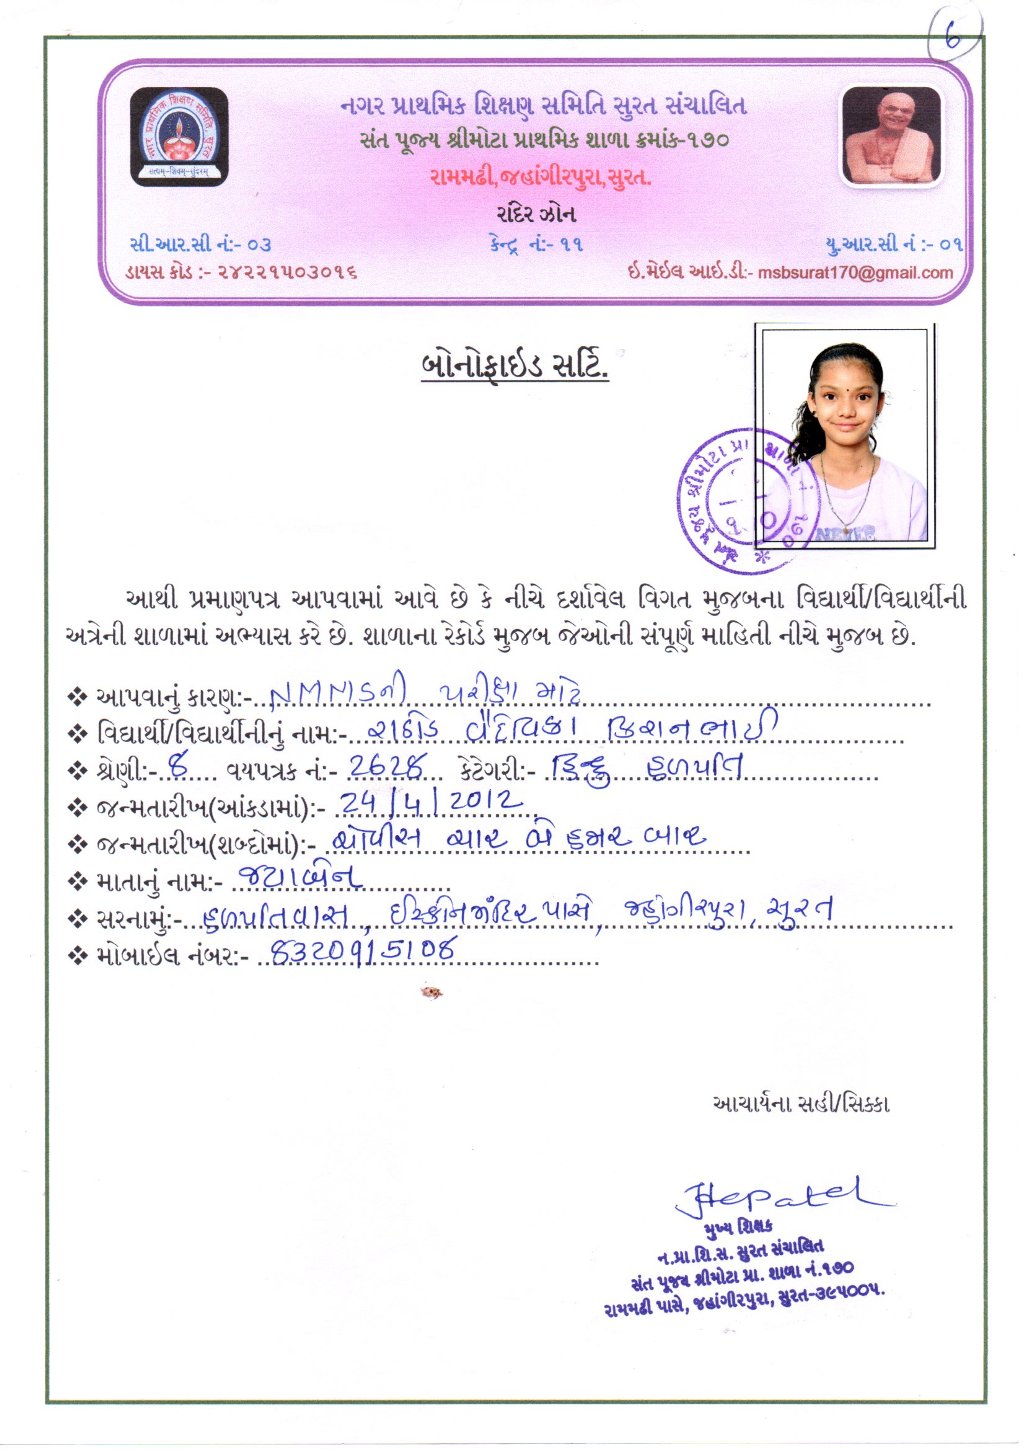 6
નગર પ્રાથમિક શિક્ષણ સમિતિ સુરત સંચાલિત
સંત પૂજ્ય શ્રીમોટા પ્રાથમિક શાળા ક્રમાંક-૧૭૦
રામમઢી,જહાંગીરપુરા,સુરત.
રાંદેર ઝોન
સી.આર.સી નં:- ૦૩ કેન્દ્ર નં:- ૧૧ યુ.આર.સી નં :- ૦૧
ડાયસ કોડ :- ૨૪૨૨૧૫૦૩૦૧૬ ઇ.મેઇલ આઇ.ડી:- msbsurat170@gmail.com
નગર પ્રાથમિક શિક્ષણ સમિતિ, સુરત
સત્યમ્-શિવમ્-સુંદરમ્
બોનોફાઇડ સર્ટિ.
સંત પૂજ્ય શ્રીમોટા પ્રા શાળા નં. ૧૭૦
NEVER
આથી પ્રમાણપત્ર આપવામાં આવે છે કે નીચે દર્શાવેલ વિગત મુજબના વિદ્યાર્થી/વિદ્યાર્થીની
અત્રેની શાળામાં અભ્યાસ કરે છે. શાળાના રેકોર્ડ મુજબ જેઓની સંપૂર્ણ માહિતી નીચે મુજબ છે.
❖ આપવાનું કારણ:- NMMSની પરીક્ષા માટે
❖ વિદ્યાર્થી/વિદ્યાર્થીનીનું નામ:- રાઠોડ વૈદેવિકા કિશનભાઈ
❖ શ્રેણી:- 8 વયપત્રક નં:- 2628 કેટેગરી:- હિન્દુ હળપતિ
❖ જન્મતારીખ(આંકડામાં):- 24/4/2012
❖ જન્મતારીખ(શબ્દોમાં):- ચોવીસ ચાર બે હજાર બાર
❖ માતાનું નામ:- જયાબેન
❖ સરનામું:- હળપતિવાસ, ઈસ્કોનમંદિર પાસે, જહાંગીરપુરા, સુરત
❖ મોબાઇલ નંબર:- 8320915108
આચાર્યના સહી/સિક્કા
Hepatel
મુખ્ય શિક્ષક
ન.પ્રા.શિ.સ. સુરત સંચાલિત
સંત પૂજ્ય શ્રીમોટા પ્રા. શાળા નં.૧૭૦
રામમઢી પાસે, જહાંગીરપુરા, સુરત-૩૯૫૦૦૫.